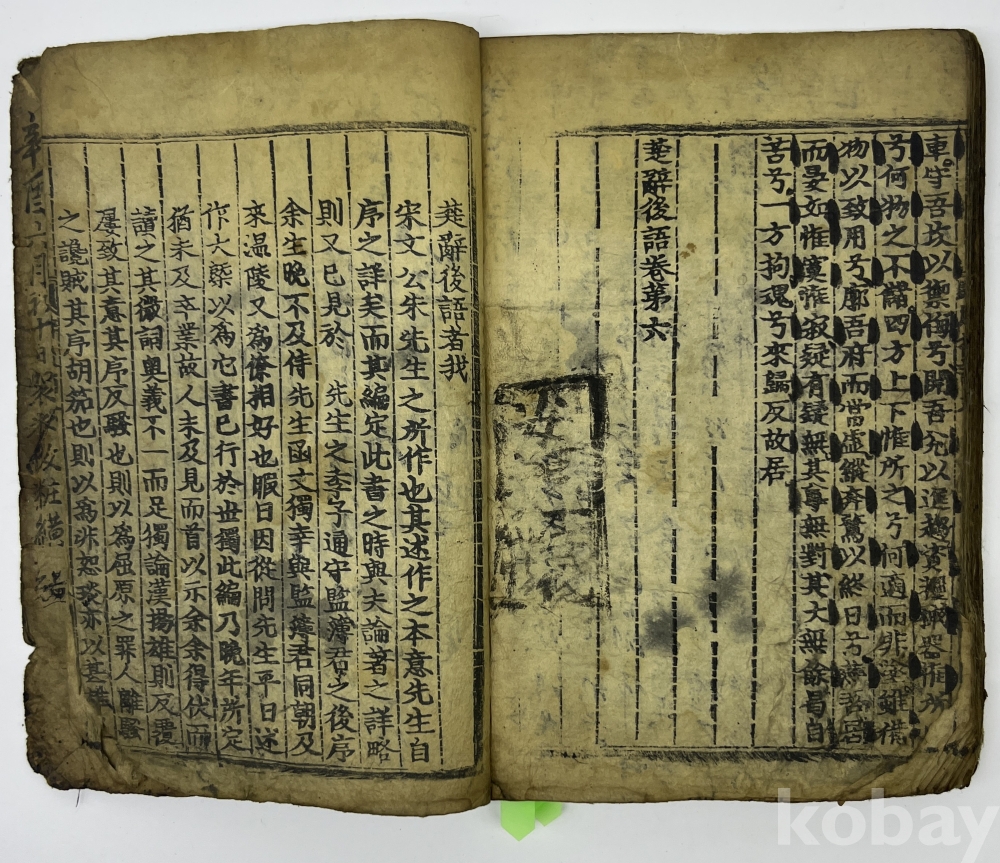 車守吾坎以禦侮兮開吾兌以進趨實
兮何物之不儲四方上下惟所之兮何適而非
物以致用兮廓吾府而當虛縱奔騖以終日兮
而晏如惟寞惟寂疑有疑無其尊無對其大無餘曷自
苦兮一方拘魂兮來歸反故居
楚辭後語卷第六
楚辭後語者我
宋文公朱先生之所作也其述作之本意先生自
序之詳矣而其編定此書之時與夫論著之詳略
則又已見於 先生之季子通守監簿君之後序
余生晚不及侍先生函文獨幸與監簿君同朝及
來溫陵又爲僚相好也暇日因從問先生平日述
作大槩以爲它書已行於世獨此編乃晚年所定
猶未及卒業故人未及見而首以示余余得伏而
讀之其微詞奧義不一而足獨論漢揚雄則反覆
屢致其意其序反騷也則以爲屈原之罪人離騷
之讒賊其序胡笳也則以爲非恕琰亦以甚雄
kobay